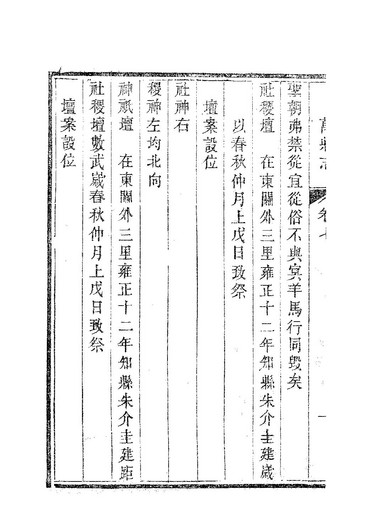 萬縣志 卷七 一
聖朝弗禁從宜從俗不與冥羊馬行同毀矣
社稷壇 在東關外三里雍正十二年知縣朱介圭建歲
以春秋仲月上戊日致祭
壇案設位
社神右
稷神左均北向
神祇壇 在東關外三里雍正十二年知縣朱介圭建距
社稷壇數武歲春秋仲月上戊日致祭
壇案設位